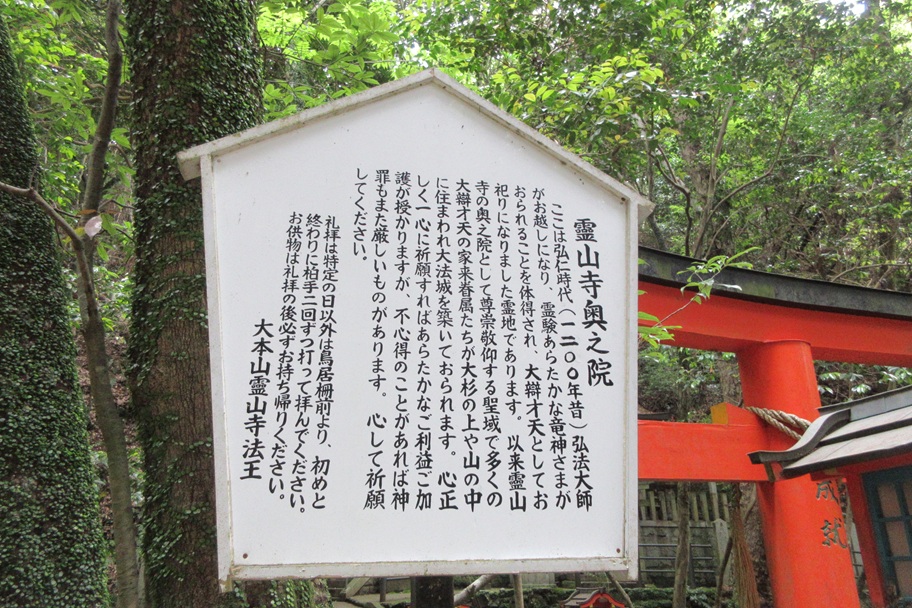 霊山寺奥之院
ここは弘仁時代（一二〇〇年昔）弘法大師
がお越しになり、霊験あらたかな竜神さまが
おられることを体得され、大辯才天としてお
祀りになりました霊地であります。以来霊山
寺の奥之院として尊崇敬仰する聖域で多くの
大辯才天の家来眷属たちが大杉の上や山の中
に住まわれ大法城を築いておられます。心正
しく一心に祈願すればあらたかなご利益ご加
護が授かりますが、不心得のことがあれば神
罪もまた厳しいものがあります。心して祈願
してください。
礼拝は特定の日以外は鳥居柵前より、初めと
終わりに拍手二回ずつ打って拝んでください。
お供物は礼拝の後必ずお持ち帰りください。
大本山霊山寺法王
成就